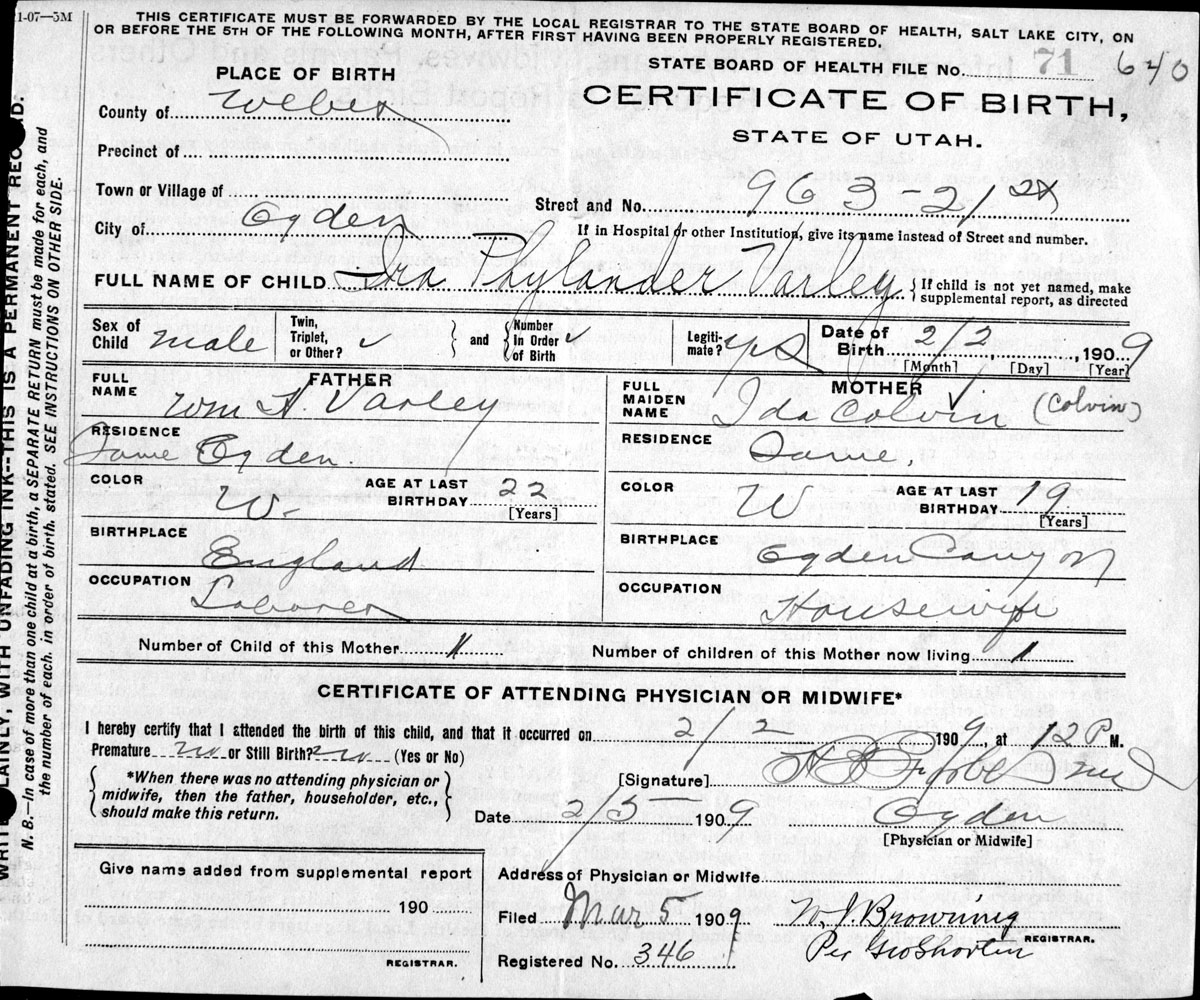 1-07—5M
THIS CERTIFICATE MUST BE FORWARDED BY THE LOCAL REGISTRAR TO THE STATE BOARD OF HEALTH, SALT LAKE CITY, ON
OR BEFORE THE 5TH OF THE FOLLOWING MONTH, AFTER FIRST HAVING BEEN PROPERLY REGISTERED.
STATE BOARD OF HEALTH FILE No. 71 640
PLACE OF BIRTH
CERTIFICATE OF BIRTH,
STATE OF UTAH.
County of Weber
Precinct of
Town or Village of
Street and No. 963-21st
City of Ogden
If in Hospital or other Institution, give its name instead of Street and number.
FULL NAME OF CHILD Ira Phylander Varley { If child is not yet named, make
supplemental report, as directed
Sex of Child male
Twin, Triplet, or Other? ✓
and Number in Order of Birth ✓
Legitimate? yes
Date of Birth 2/2, 1909
[Month] [Day] [Year]
FATHER
FULL NAME Wm A. Varley
RESIDENCE Same Ogden.
COLOR W.
AGE AT LAST BIRTHDAY 22
[Years]
BIRTHPLACE England
OCCUPATION Laborer
MOTHER
FULL MAIDEN NAME Ida Colvin (Colvin)
RESIDENCE Same.
COLOR W
AGE AT LAST BIRTHDAY 19
[Years]
BIRTHPLACE Ogden Canyon
OCCUPATION Housewife
Number of Child of this Mother 1
Number of children of this Mother now living 1
CERTIFICATE OF ATTENDING PHYSICIAN OR MIDWIFE*
I hereby certify that I attended the birth of this child, and that it occurred on 2/2 1909, at 12 P M.
Premature no or Still Birth? no (Yes or No)
*When there was no attending physician or
midwife, then the father, householder, etc.,
should make this return.
[Signature]
Date 2/5 1909
Ogden
[Physician or Midwife]
Give name added from supplemental report
190
REGISTRAR.
Address of Physician or Midwife
Filed Mar 5 1909
W. J. Browning
REGISTRAR.
Per Geo Shorten
Registered No. 346
WRITE PLAINLY, WITH UNFADING INK--THIS IS A PERMANENT RECORD.
N. B.—In case of more than one child at a birth, a SEPARATE RETURN must be made for each, and
the number of each. in order of birth. stated. SEE INSTRUCTIONS ON OTHER SIDE.